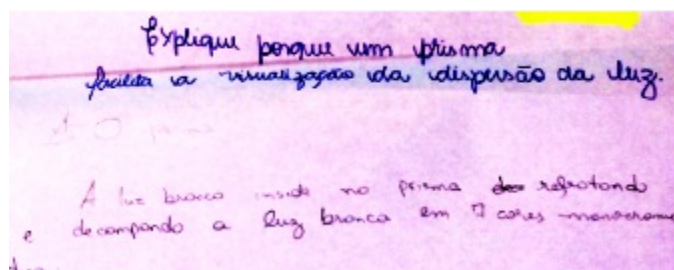 Explique porque um prisma
facilita a visualização da dispersão da luz.
A luz branca inside no prisma refratando
e decompondo a luz branca em 7 cores